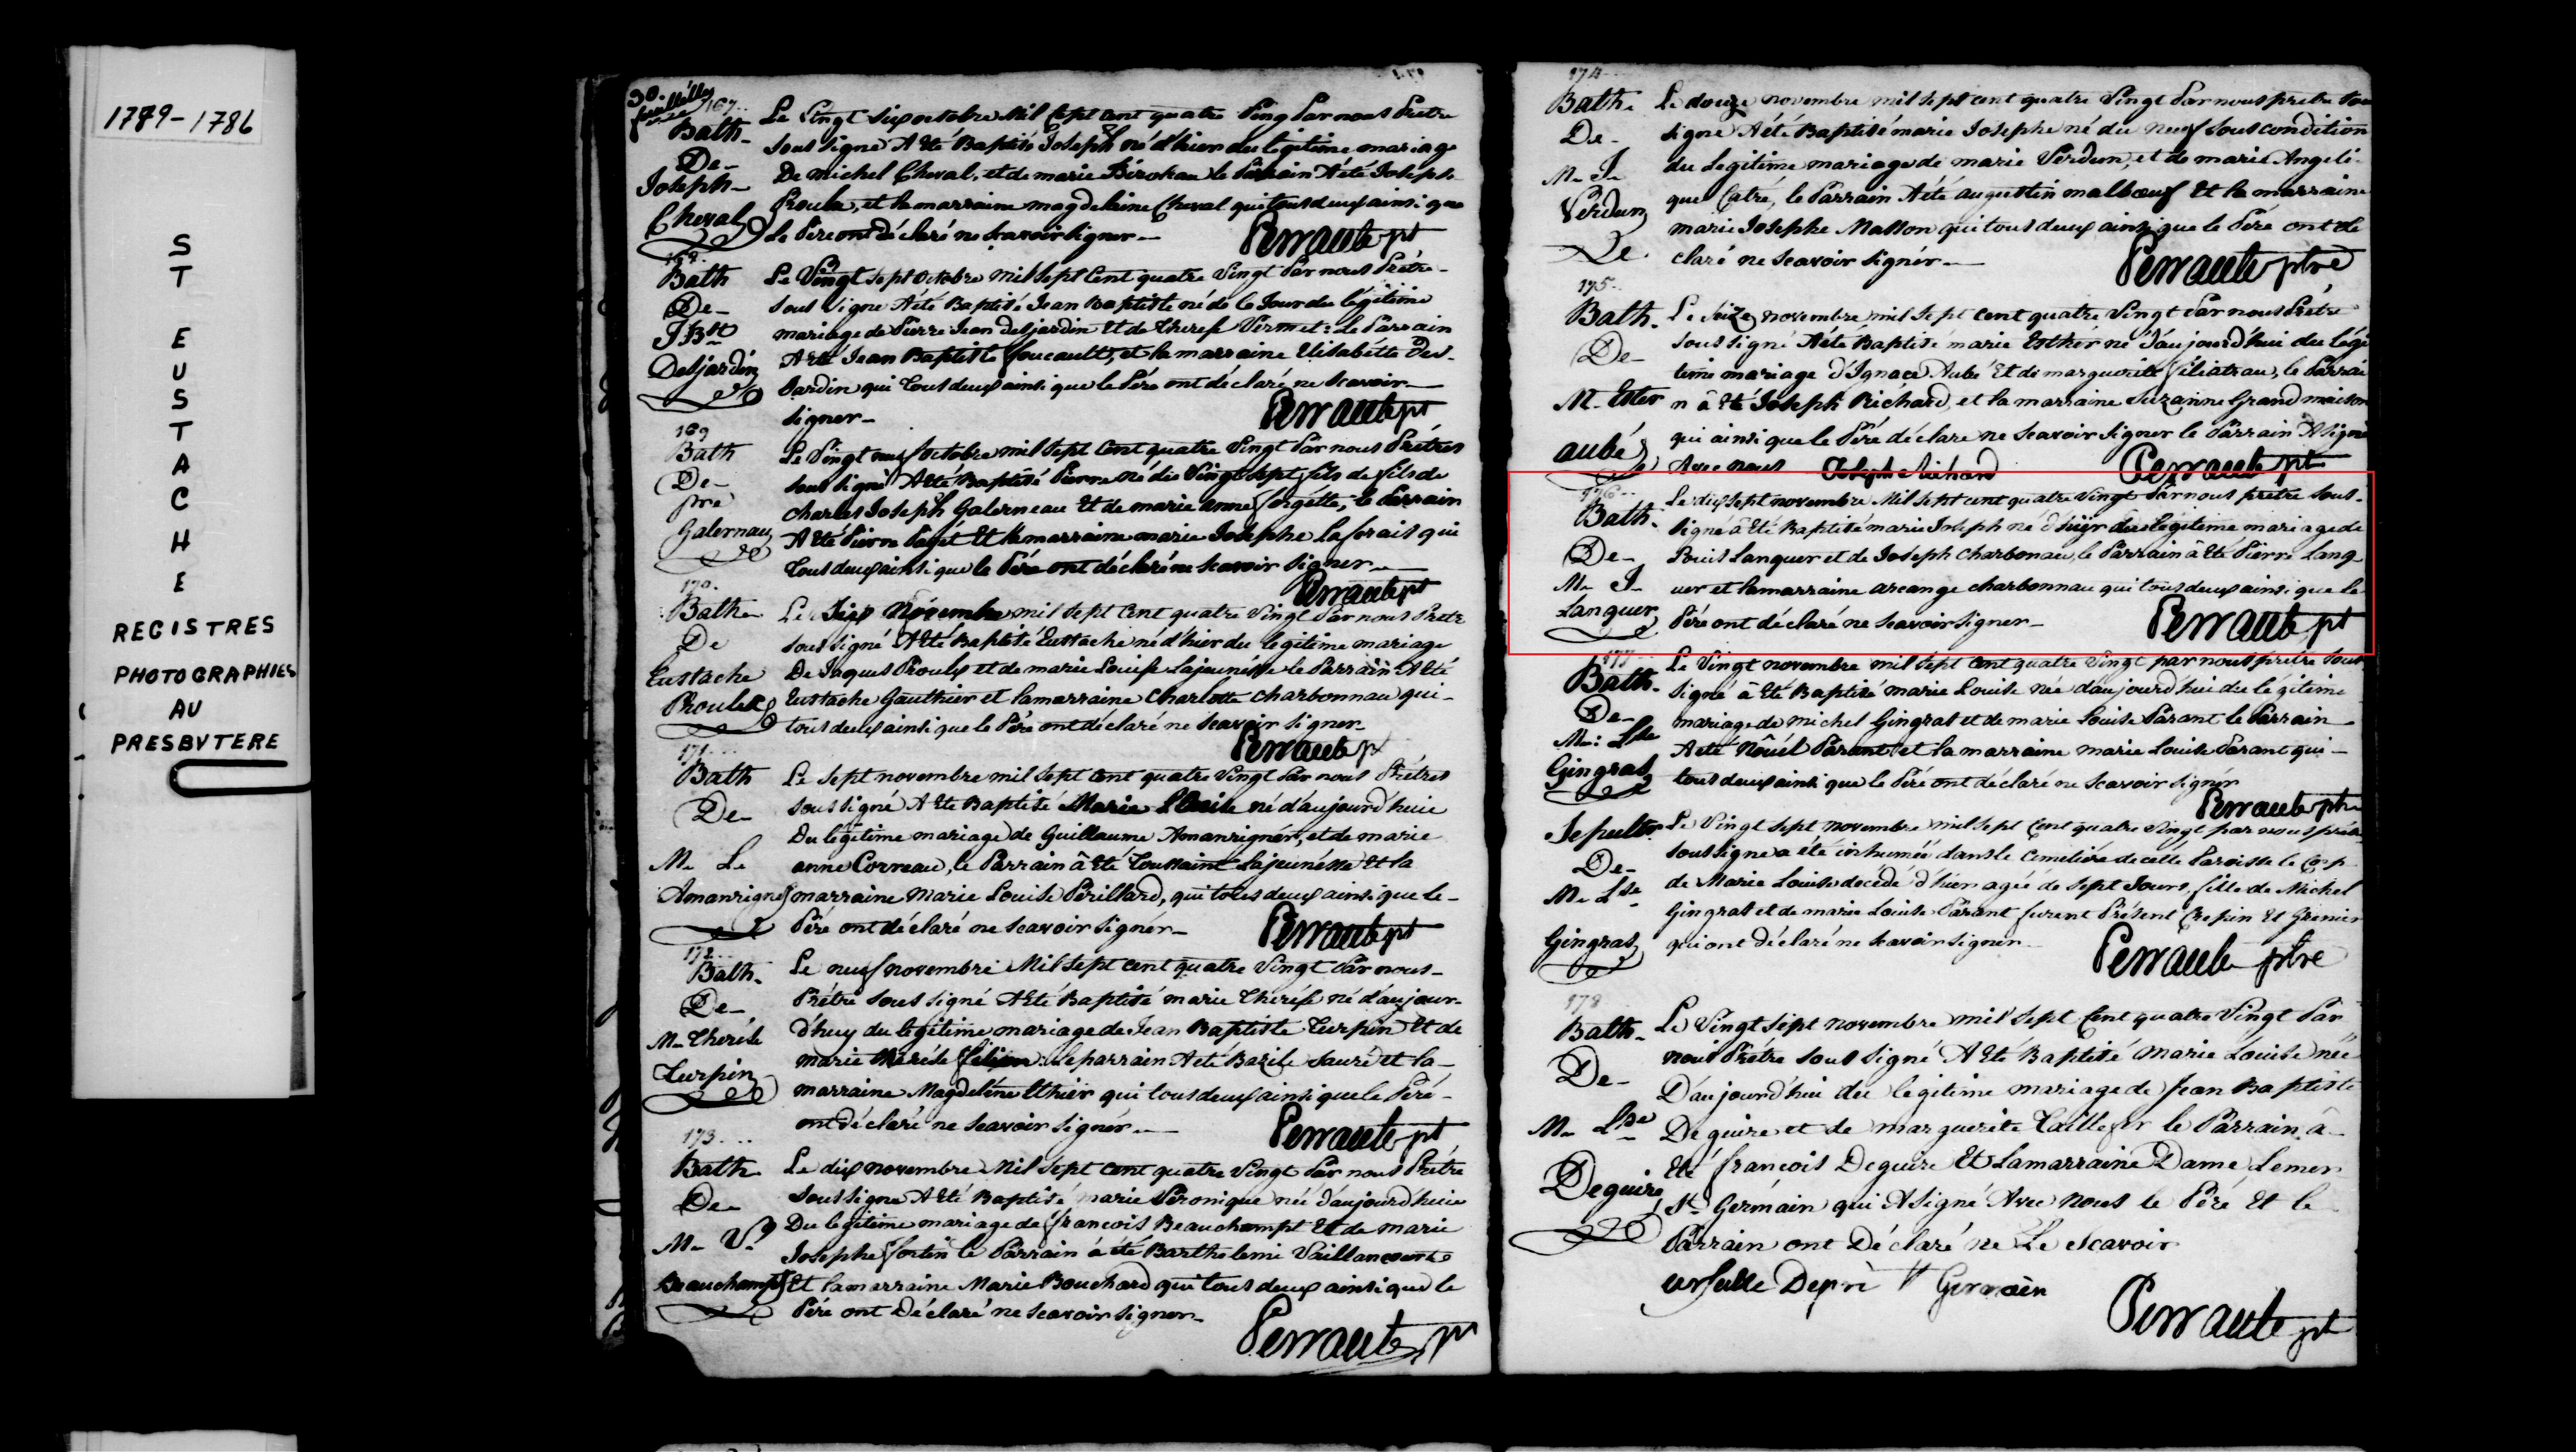 1779-1786
S
T
E
U
S
T
A
C
H
E
REGISTRES
PHOTOGRAPHIES
AU
PRESBYTERE
30.
feuillet
167..
Bath.
De
Joseph
Cheval
Le Vingt six octobre Mil sept cent quatre Vingt Par nous Prêtre
sous signé A Eté Baptisé Joseph né d'hier du légitime mariage
De michel Cheval, et de marie Birokau le Parrain A été Joseph
Proula, et la marraine magdelaine Cheval qui tous deux ainsi que
Le Pere ont déclaré ne scavoir signer
Perrault pt
168.
Bath
De
J Bte
Desjardin
Le Vingt sept octobre mil sept cent quatre Vingt Par nous Prêtre
sous signé A été Baptisé Jean Baptiste né de ce Jour du légitime
mariage de Pierre Jean desjardin Et de therese Vermet: Le Parrain
A été Jean Baptiste foucault, et la marraine Elisabette Des-
Jardin qui tous deux ainsi que le Péré ont déclaré ne scavoir
signer
Perrault pt
169
Bath
De
pre
Galernau
Le Vingt neuf octobre mil sept cent quatre Vingt Par nous Prêtres
sous signé A Eté Baptisé Pierre né du Vingt sept fils de fils de
charles Joseph Galerneau Et de marie anne forgette, le parrain
A Eté Pierre Payet Et la marraine marie Josephe laforais qui
tous deux ainsi que le Péré ont déclaré ne scavoir signer
Perrault pt
170.
Bath
De
Eustache
Proulx
Le Six Novembre mil sept cent quatre Vingt Par nous Pretre
sous signé A Eté Baptisé Eustache né d'hier du légitime mariage
De Jaques Proulx et de marie Louise Lajeunesse le Parrain A Eté
Eustache Gauthier et la marraine Charlotte charbonnau qui
tous deux ainsi que le Péré ont déclaré ne scavoir signer
Perrault p
171
Bath
De
M. Le
Amanrigner
Le sept novembre mil sept cent quatre Vingt Par nous Prêtres
sous signé A Eté Baptisé Marie Louise né d'aujourd'huie
Du légitime mariage de Guillaume Amanrigner, et de marie
anne Corneau, le Parrain â Eté Toussaint Lajeunesse Et la
marraine Marie Louise Périllard, qui tous deux ainsi que le
Péré ont déclaré ne scavoir signér
Perrault pt
172
Bath.
De
M. Therése
Turpin
Le neuf novembre Mil sept cent quatre Vingt Par nous
Prêtre sous signé A Eté Baptisé marie Therése né d'aujour-
d'huy du légitime mariage de Jean Baptiste Turpin Et de
marie therése le parrain A eté Bazile Sauré et la
marraine Magdeléne Ethier qui tous deux ainsi que le Péré
ont déclaré ne scavoir signér
Perrault pt
173
Bath
De
M. Vq
Beauchampt
Le dix novembre Mil sept cent quatre Vingt Par nous Prêtre
sous signé A Eté Baptisé marie Véronique née d'aujourd'huie
Du légitime mariage de françois Beauchampt Et de marie
Josephe fortin le Parrain â été Barthelemi Vaillancourt
Et la marraine Marie Bouchard qui tous deux ainsi que le
Péré ont Déclaré ne scavoir signer
Perrault p
174
Bath.
De
M. J.
Verdun
Le douze novembre mil sept cent quatre Vingt Par nous prêtre sou
signé A été Baptisé marie Josephe né du neuf sous condition
du Legitime mariage de marie Verdun, et de marie Angeli-
que Catré, le Parrain A été augustin malboeuf Et la marraine
marie Josephe Masson qui tous deux ainsi que le Péré ont dé
claré ne scavoir signér
Perrault ptre
175
Bath.
De
M. Ester
aubé
Le seize novembre mil sept cent quatre Vingt Par nous Prêtre
sous signé A été Baptisé marie Esthér né d'aujourd'hui du légi
time mariage d'Ignace Aubé Et de marguerite filiatrau, le Parrai
n â Eté Joseph Richard, et la marraine Suzanne Grand maison
qui ainsi que le Péré déclare ne scavoir signer le Parrain A signé
Avec nous Joseph Richard Perrault pt
176
Bath.
De
M. J.
Languer
Le dix sept novembre Mil sept cent quatre Vingt Par nous prêtre sous-
signé â Eté Baptisé marie Joseph né d'huijr du légitime mariage de
Louis Languer et de Joseph Charbonau, le Parrain â Eté Pierre Lang
uer et la marraine arcange charbonnau qui tous deux ainsi que le
Péré ont déclaré ne scavoir signer
Perrault pt
177
Bath.
De
M. Lse
Gingras
Le Vingt novembre mil sept cent quatre Vingt par nous prêtre sous
signé â Eté Baptisé marie Louise née d'aujourd'hui du légitime
mariage de michel Gingras et de marie Louise Parant le Parrain
A eté Nöuél Parant et la marraine marie Louise Parant qui
tous deux ainsi que le Péré ont déclaré ne scavoir signér
Perrault ptr
Sepultur
De
M. Lse
Gingras
Le Vingt sept novembre mil sept cent quatre Vingt par nous prétre
sous signé a été inhumée dans le cimetiére de cette Paroisse le Corp
de Marie Louise décédé d'hier agée de sept Jours, fille de Michel
Gingras et de marie Louise Parant furent Présent Crepin Et Grenier
qui ont déclaré ne scavoir signer
Perrault ptre
178
Bath.
De
M. Lse
Deguire
Le Vingt sépt novembre mil sept Cent quatre Vingt Par
nous Prêtre sous signé A Eté Baptisé Marie Louise née
D'aujourd'hui du légitime mariage de Jean Baptiste
Deguire et de marguerite Taillefer le Parrain â
Eté françois Deguire Et La marraine Dame Lemer
St Germain qui A signé Avec nous le Péré Et le
Parrain ont Déclaré ne Le scavoir
ursulle Depré St Germain
Perrault pt